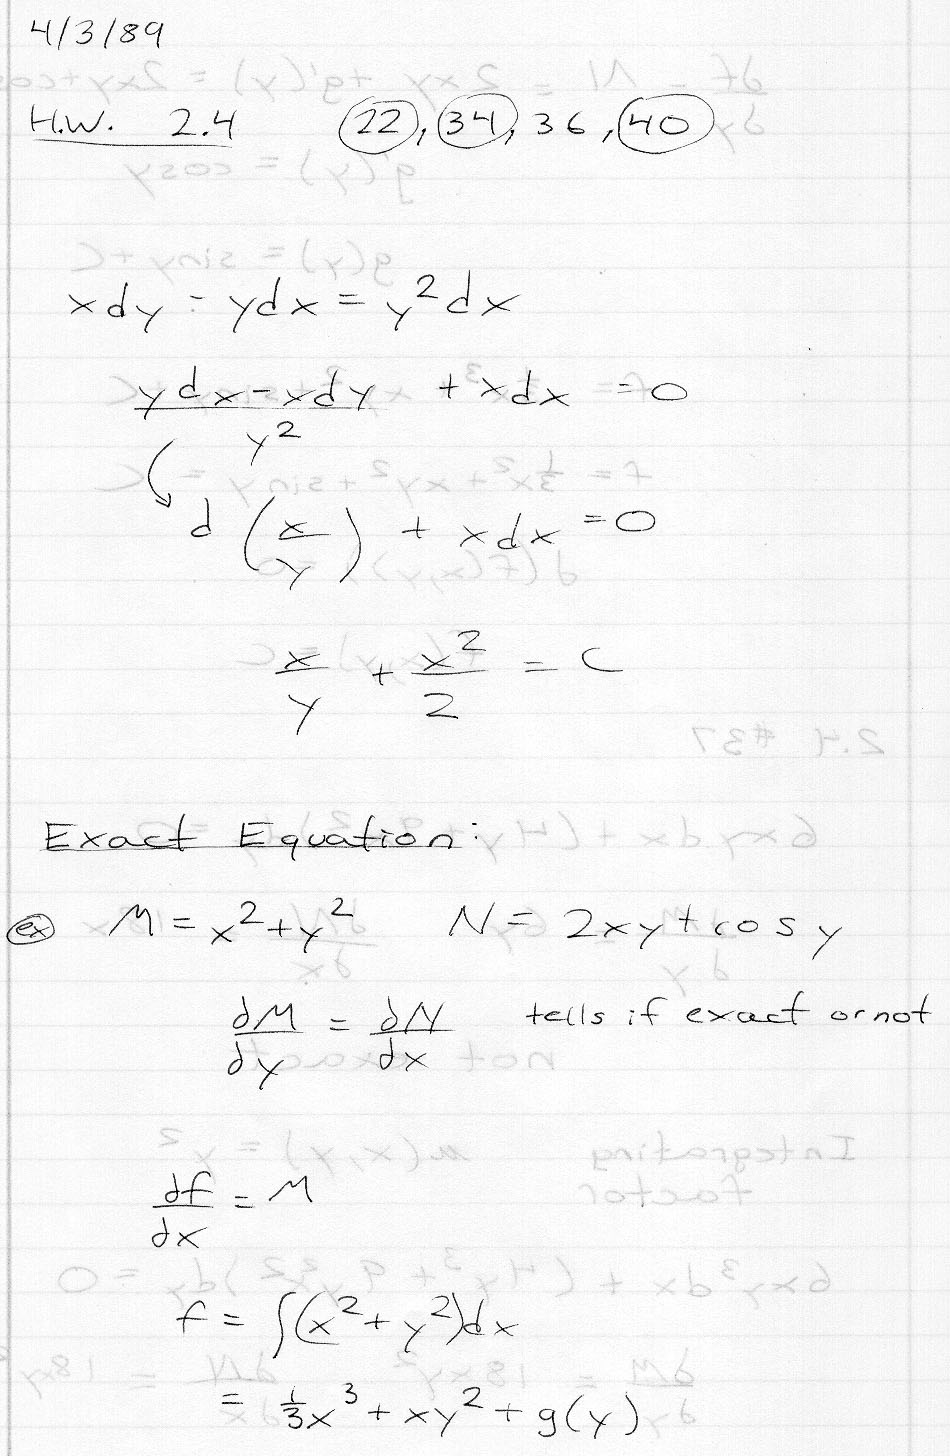 4/3/89
H.W. 2.4 22, 34, 36, 40
xdy - ydx = y²dx
(ydx - xdy)/y² + xdx = 0
d(x/y) + xdx = 0
x/y + x²/2 = C
Exact Equation:
ex M = x² + y² N = 2xy + cos y
∂M/∂y = ∂N/∂x tells if exact or not
∂f/∂x = M
f = ∫(x² + y²)dx
= ⅓x³ + xy² + g(y)